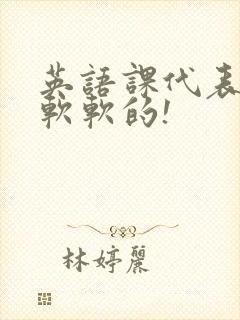 英語課代表
軟軟的!
林婷麗